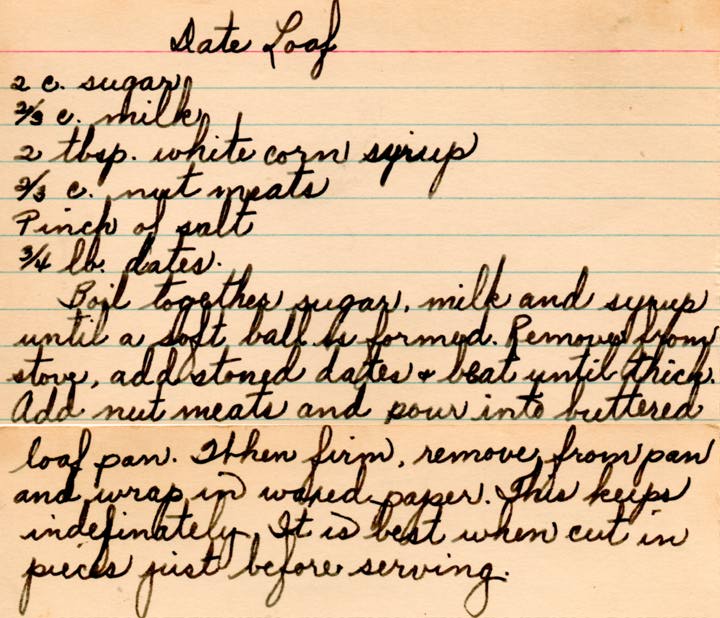 Date Loaf
2 c. sugar
2/3 c. milk
2 tbsp. white corn syrup
2/3 c. nut meats
Pinch of salt
3/4 lb. dates.
Boil together sugar, milk and syrup
until a soft ball is formed. Remove from
stove, add stoned dates & beat until thick.
Add nut meats and pour into buttered
loaf pan. When firm, remove from pan
and wrap in waxed paper. This keeps
indefinately. It is best when cut in
pieces just before serving.